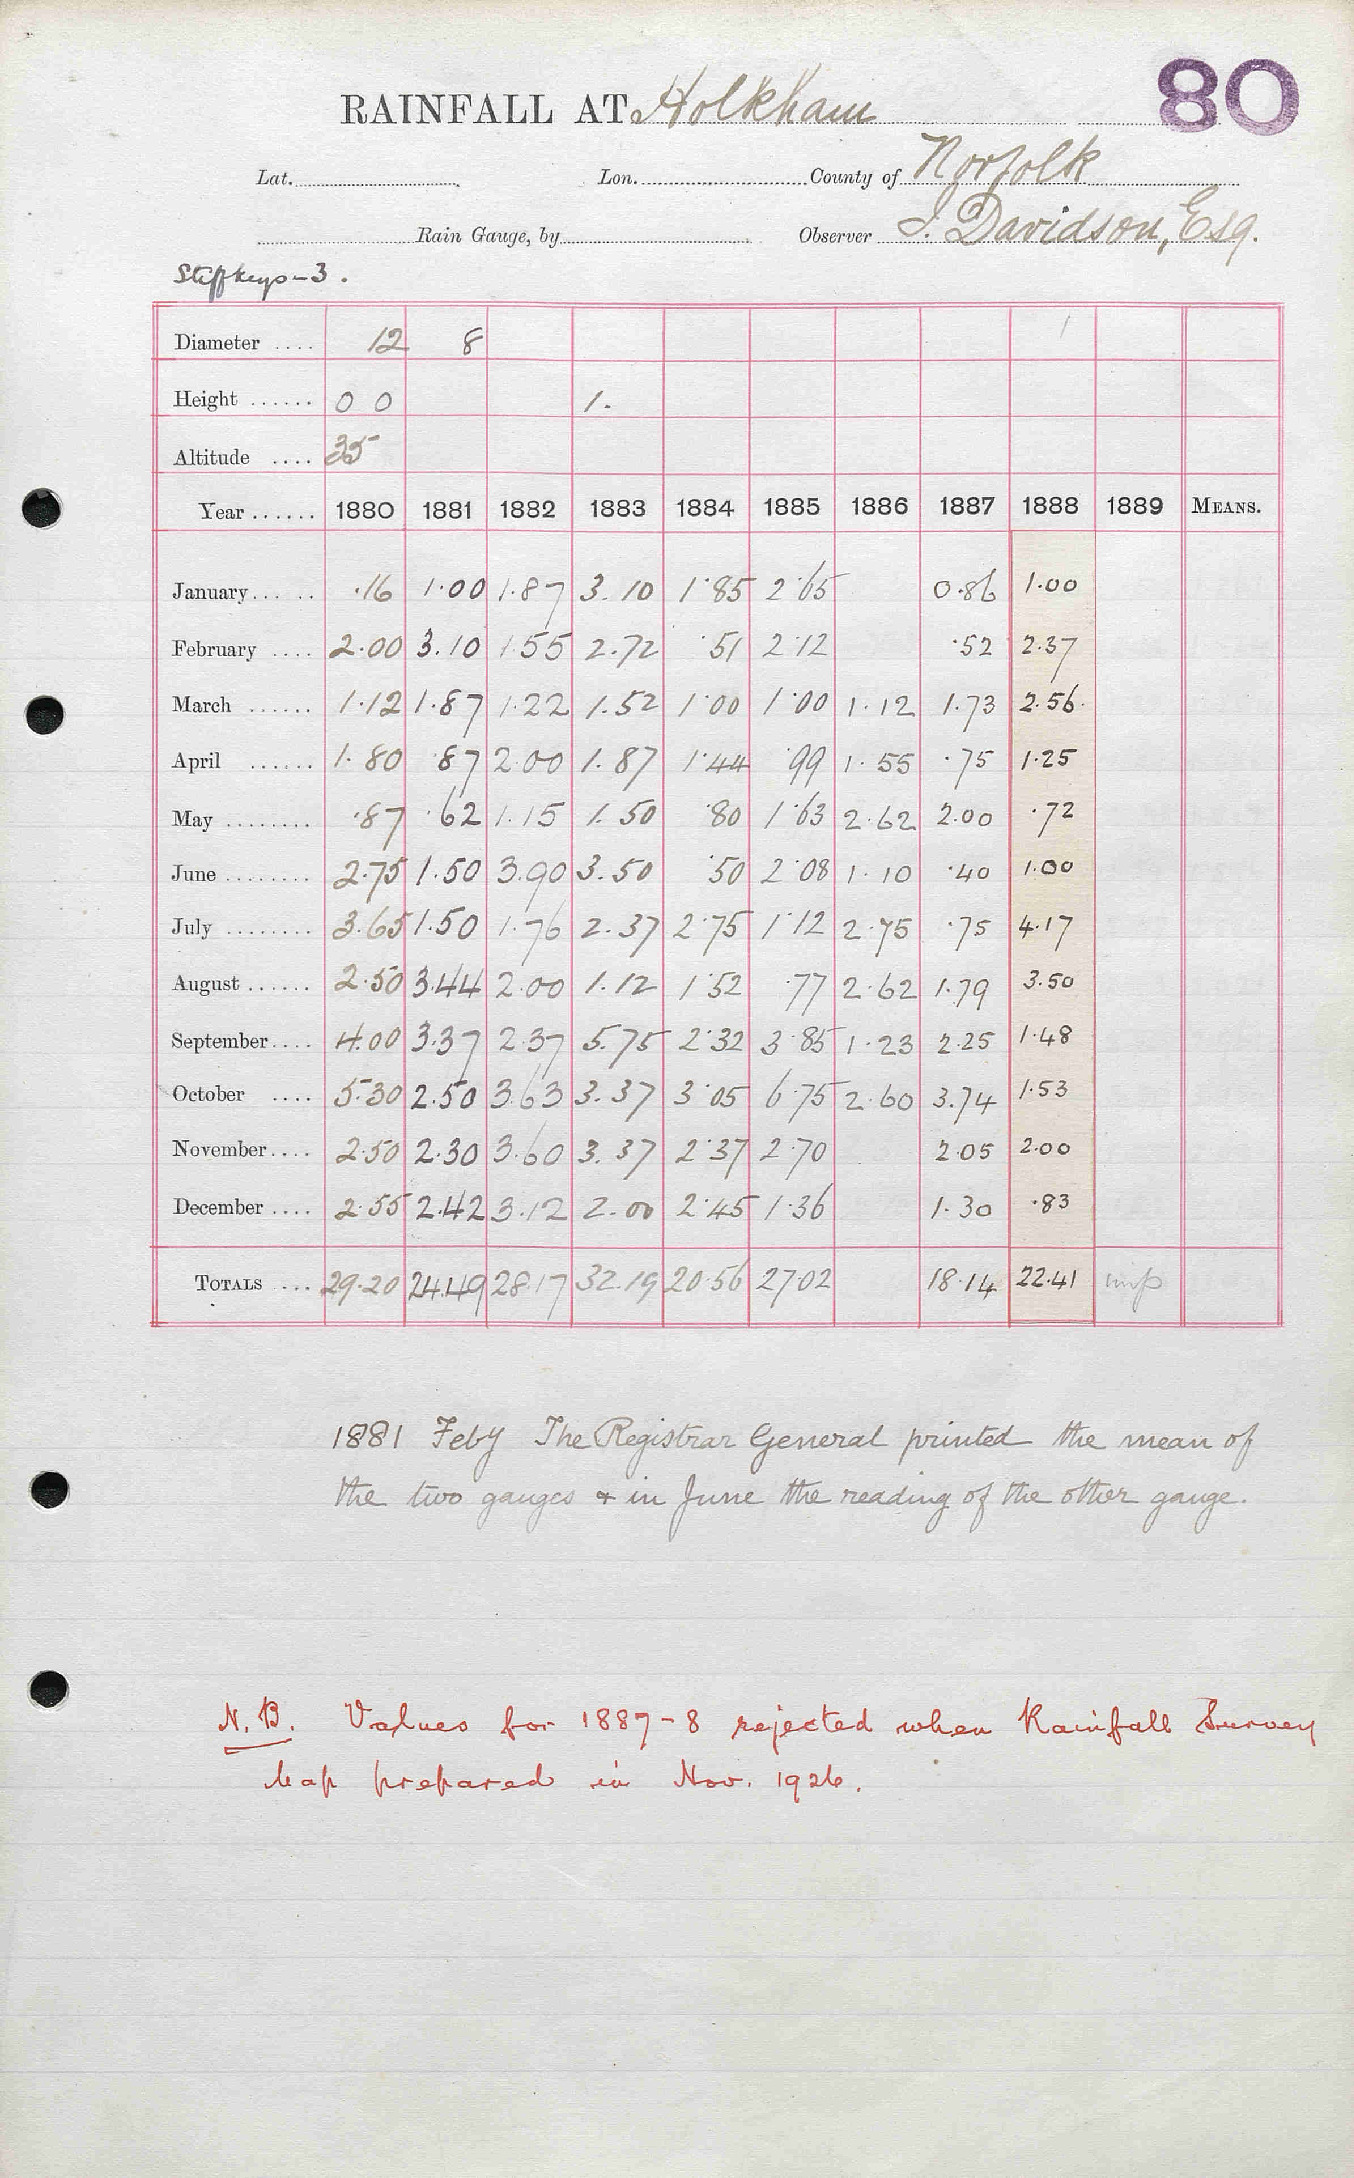 80
RAINFALL AT Holkham
Lat. Lon. County of Norfolk
Rain Gauge, by Observer J. Davidson, Esq.
Stiffkeys-3.
Diameter .... 12 8
Height ...... 0 0 1.
Altitude .... 35
Year ...... 1880 1881 1882 1883 1884 1885 1886 1887 1888 1889 MEANS.
January... .. .16 1.00 1.87 3.10 1.85 2.65 0.86 1.00
February .... 2.00 3.10 1.55 2.72 .51 2.12 .52 2.37
March ...... 1.12 1.87 1.22 1.52 1.00 1.00 1.12 1.73 2.56
April ...... 1.80 .87 2.00 1.87 1.44 .99 1.55 .75 1.25
May ........ .87 .62 1.15 1.50 .80 1.63 2.62 2.00 .72
June ........ 2.75 1.50 3.90 3.50 .50 2.08 1.10 .40 1.00
July ........ 3.65 1.50 1.76 2.37 2.75 1.12 2.75 .75 4.17
August ...... 2.50 3.44 2.00 1.12 1.52 .77 2.62 1.79 3.50
September.... 4.00 3.37 2.37 5.75 2.32 3.85 1.23 2.25 1.48
October .... 5.30 2.50 3.63 3.37 3.05 6.75 2.60 3.74 1.53
November.... 2.50 2.30 3.60 3.37 2.37 2.70 2.05 2.00
December .... 2.55 2.42 3.12 2.00 2.45 1.36 1.30 .83
TOTALS ... 29.20 24.49 28.17 32.19 20.56 27.02 18.14 22.41 imp
1881 Feby The Registrar General printed the mean of
the two gauges & in June the reading of the other gauge.
N.B. Values for 1887-8 rejected when Rainfall Survey
Map prepared in Nov. 1926.